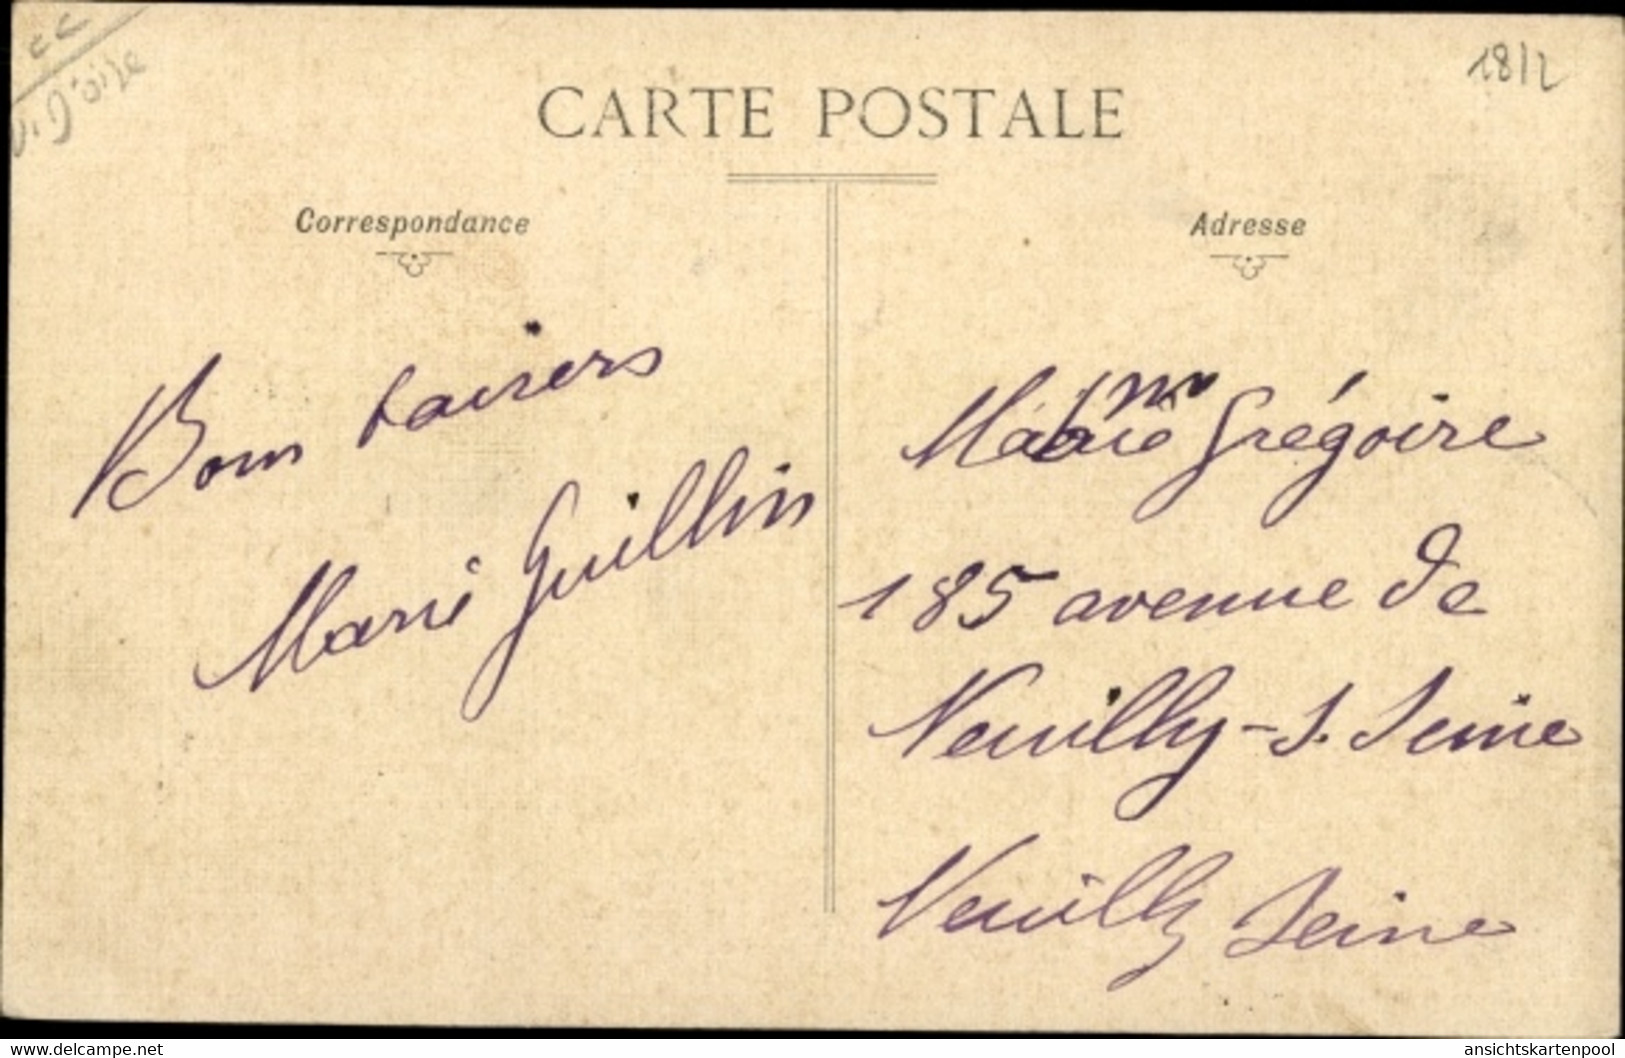 V. d'oise
18/2
CARTE POSTALE
Correspondance
Adresse
Bons baisers
Marie Guillin
Marie Grégoire
185 avenue de
Neuilly-s. Seine
Neuilly Seine
www.delcampe.net
ansichtskartenpool